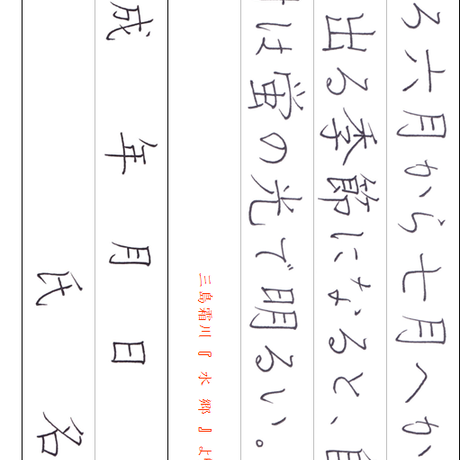 ろ六月から七月へか
出る季節になると、
は蛍の光で明るい。
三島霜川『水郷』より
成 年 月 日
氏 名